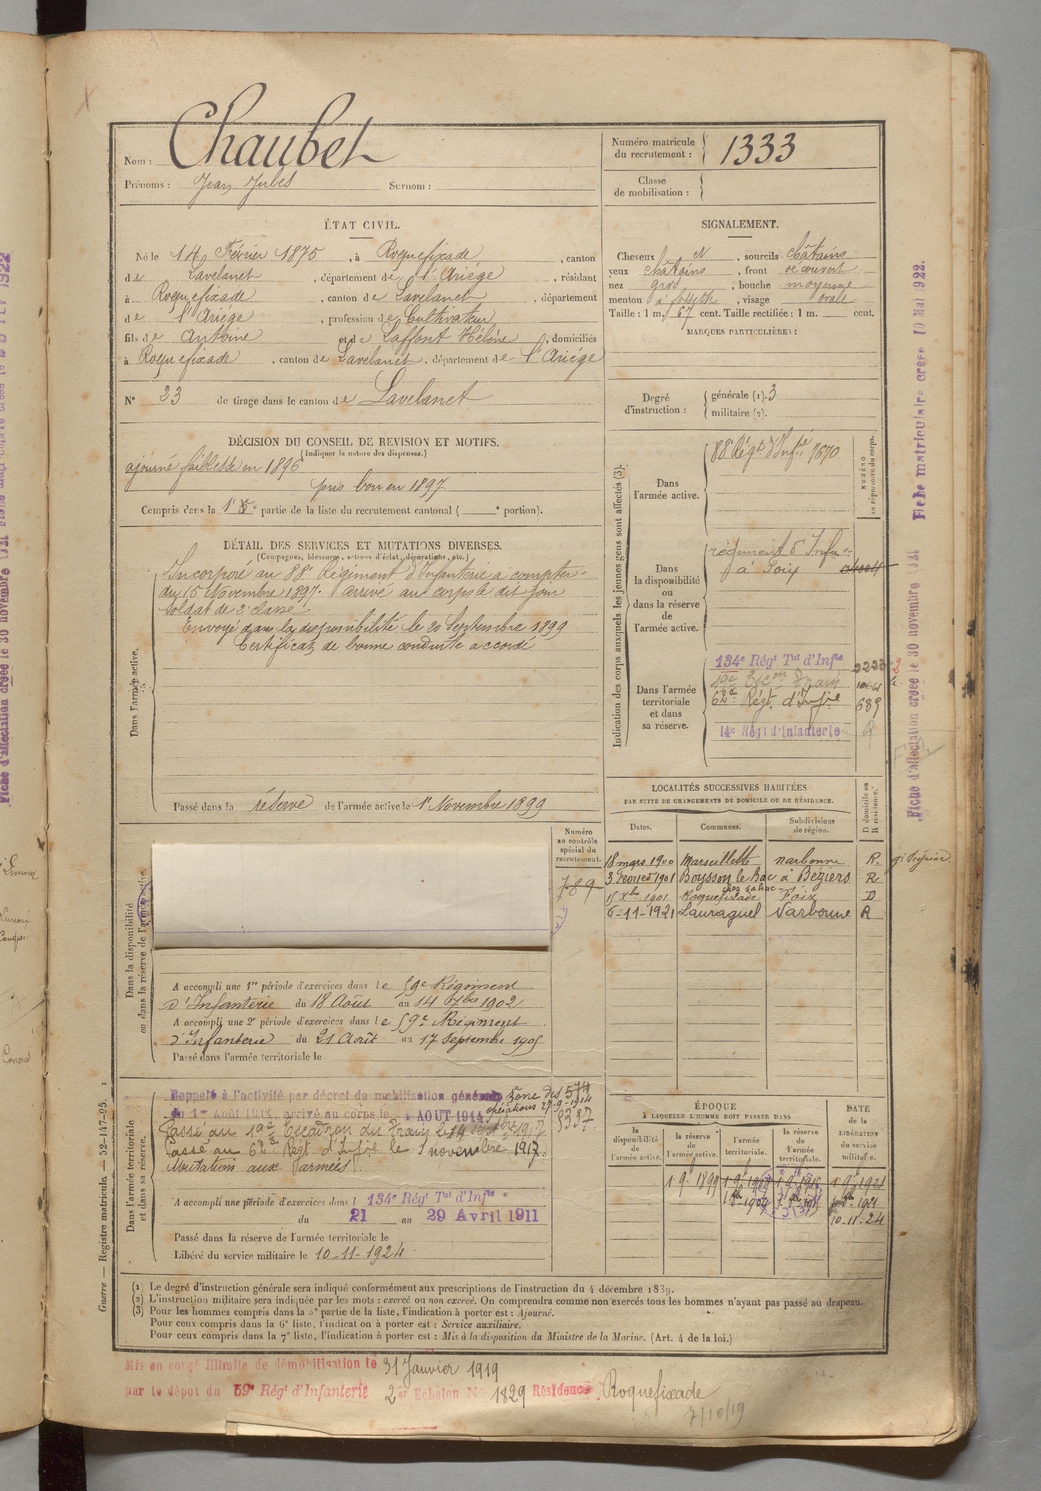 Nom : Chaubet
Prénoms : Jean Jules Surnom :
Numéro matricule du recrutement : 1333
Classe de mobilisation :
ÉTAT CIVIL.
Né le 14 Février 1875, à Roquefixade, canton
de Lavelanet, département de l'Ariège, résidant
à Roquefixade, canton de Lavelanet, département
de l'Ariège, profession de Cultivateur
fils de Antoine et de Laffont Hélène, domiciliés
à Roquefixade, canton de Lavelanet, département de l'Ariége
N° 23 de tirage dans le canton de Lavelanet
SIGNALEMENT.
Cheveux N, sourcils châtains
yeux châtains, front découvert
nez gros, bouche moyenne
menton à fossette, visage ovale
Taille : 1 m. 67 cent. Taille rectifiée : 1 m. cent.
MARQUES PARTICULIÈRES :
Degré d'instruction : générale (1). 3
militaire (2).
DÉCISION DU CONSEIL DE REVISION ET MOTIFS.
(Indiquer la nature des dispenses.)
ajourné faiblesse en 1896
pris bon en 1897
Compris dans la 1e partie de la liste du recrutement cantonal ( e portion).
DÉTAIL DES SERVICES ET MUTATIONS DIVERSES.
(Campagnes, blessures, actions d'éclat, décorations, etc.)
Dans l'armée active.
Incorporé au 88e Régiment d'Infanterie à compter
du 15 Novembre 1897. arrivé au corps le dit jour
soldat de 2e classe
Envoyé dans la disponibilité le 20 Septembre 1899
Certificat de bonne conduite accordé
Passé dans la réserve de l'armée active le 1er Novembre 1899
Indication des corps auxquels les jeunes gens sont affectés (3).
NUMÉRO au répertoire du corps.
Dans l'armée active.
88e Régt d'Infie 7670
Dans la disponibilité ou dans la réserve de l'armée active.
régiment d'Infie
à Foix
Dans l'armée territoriale et dans sa réserve.
134e Régt Tal d'Infie
19e Escon Train
62e Régt d'Infie 689
14e Régt d'Infanterie
LOCALITÉS SUCCESSIVES HABITÉES
PAR SUITE DE CHANGEMENTS DE DOMICILE OU DE RÉSIDENCE.
Dates. Communes. Subdivisions de région. D domicile ou R résidence.
18 mars 1900 Marseillette narbonne R.
3 Février 1901 Béziers R
15 Xbre 1901 Roquefixade Foix D
6-11-1921 Lauraguel Narbonne R
Dans la disponibilité ou dans la réserve de l'armée active.
Numéro au contrôle spécial du recrutement.
789
A accompli une 1re période d'exercices dans le 59e Régiment
d'Infanterie du 18 Août au 14 7bre 1902
A accompli une 2e période d'exercices dans le 59e Régiment
d'Infanterie du 21 Août au 17 Septembre 1905
Passé dans l'armée territoriale le
Dans l'armée territoriale et dans sa réserve.
Rappelé à l'activité par décret de mobilisation générale zone des 574
du 1er Août 1914, arrivé au corps le 4 AOUT 1914 opérations 27-9-1914
Passé au 19e Escadron du Train le 14 septbre 1917 3337
Passé au 62e Régt d'Infie le 1 novembre 1917.
Mutation aux armées
A accompli une période d'exercices dans l 134e Régt Tal d'Infie
du 21 au 29 Avril 1911
Passé dans la réserve de l'armée territoriale le
Libéré du service militaire le 10-11-1924
ÉPOQUE
À LAQUELLE L'HOMME DOIT PASSER DANS
la disponibilité de l'armée active. la réserve de l'armée active. l'armée territoriale. la réserve de l'armée territoriale.
DATE DE LA LIBÉRATION du service militaire.
1 9bre 1899
10-11-24
(1) Le degré d'instruction générale sera indiqué conformément aux prescriptions de l'instruction du 4 décembre 1889.
(2) L'instruction militaire sera indiquée par les mots : exercé ou non exercé. On comprendra comme non exercés tous les hommes n'ayant pas passé au drapeau.
(3) Pour les hommes compris dans la 5e partie de la liste, l'indication à porter est : Ajourné.
Pour ceux compris dans la 6e liste, l'indication à porter est : Service auxiliaire.
Pour ceux compris dans la 7e liste, l'indication à porter est : Mis à la disposition du Ministre de la Marine. (Art. 4 de la loi.)
Mis en congé illimité de démobilisation le 31 Janvier 1919
par le dépôt du 59e Régt d'Infanterie 2e Echelon No 1829 Résidence Roquefixade
7/10/19
Guerre — Registre matricule. — 52-147-95.
Fiche d'affectation créée le 30 novembre 1921 Fiche matriculaire créée 10 Mai 1922.